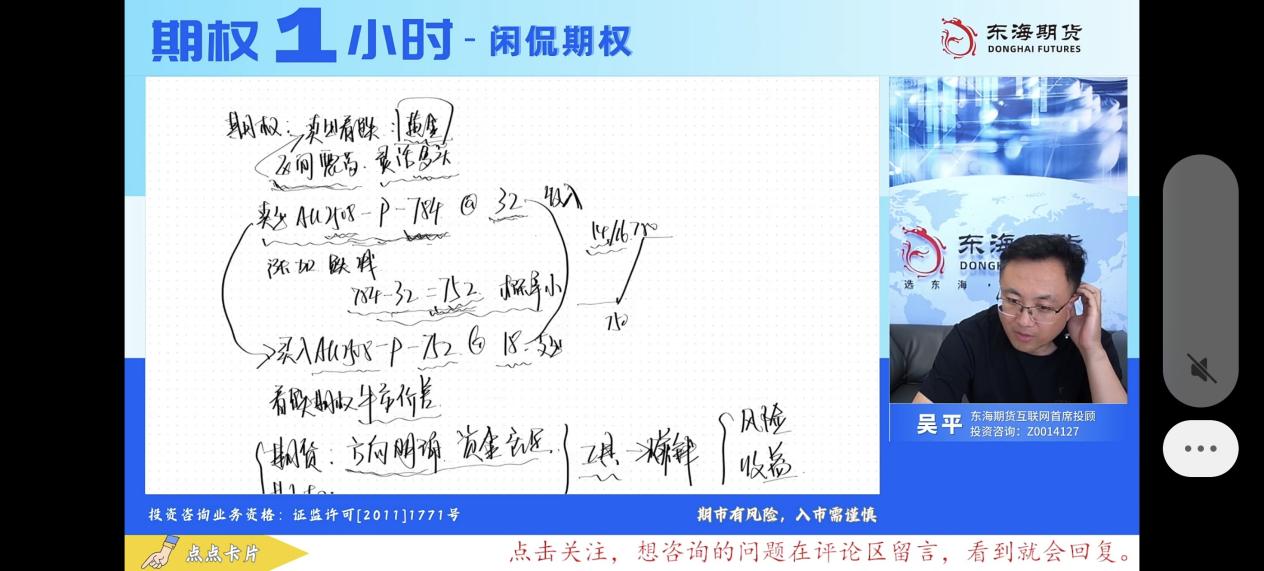 期权1小时-闲侃期权
东海期货
DONGHAI FUTURES
期权：卖出看跌：黄金
卖出 AU2508-P-784 @ 32 收入
784-32=752 概率小
750
买入AU2508-P-752 @ 18 支出
看跌期权牛市价差
期货：方向明确 资金充足
工具→赚钱
风险
收益
东海
DONG
选 东 海
吴平 东海期货互联网首席投顾
投资咨询：Z0014127
投资咨询业务资格：证监许可[2011]1771号
期市有风险，入市需谨慎
点点卡片
点击关注，想咨询的问题在评论区留言，看到就会回复。